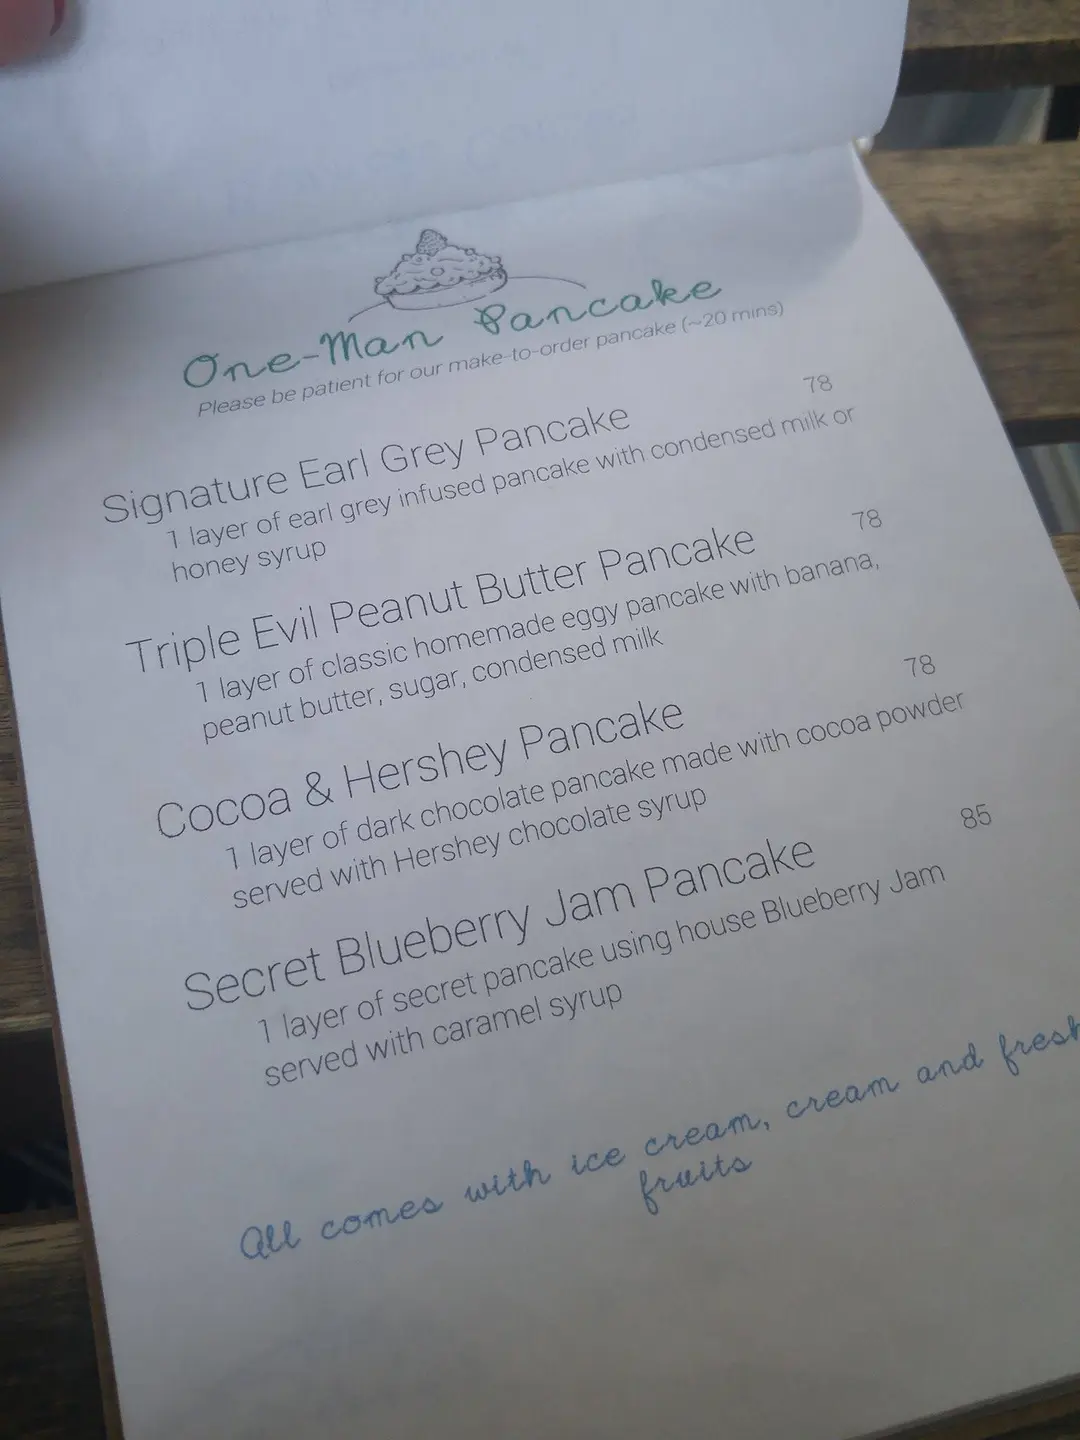 One-Man Pancake
Please be patient for our make-to-order pancake (~20 mins)
Signature Earl Grey Pancake 78
1 layer of earl grey infused pancake with condensed milk or
honey syrup
Triple Evil Peanut Butter Pancake 78
1 layer of classic homemade eggy pancake with banana,
peanut butter, sugar, condensed milk
Cocoa & Hershey Pancake 78
1 layer of dark chocolate pancake made with cocoa powder
served with Hershey chocolate syrup
Secret Blueberry Jam Pancake 85
1 layer of secret pancake using house Blueberry Jam
served with caramel syrup
All comes with ice cream, cream and fresh
fruits